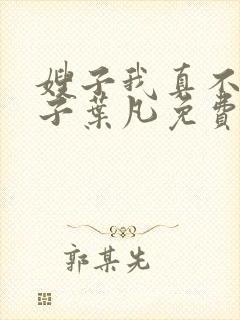 嫂子我真不
子葉凡免費
郭某先